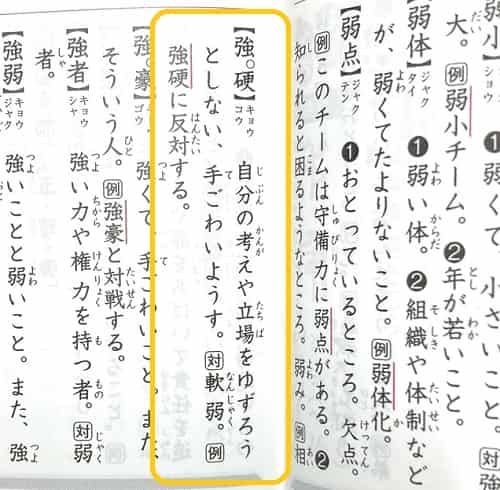 弱小】ショウ ❶弱くて、小さいこと。対強
大。例弱小チーム。❷年が若いこと。
【弱体】ジャクタイ ❶弱い体。❷組織や体制など
が、弱くてたよりないこと。例弱体化。
【弱点】ジャクテン ❶おとっているところ。欠点。
例このチームは守備力に弱点がある。❷
知られると困るようなところ。弱み。例相
【強。硬】キョウコウ 自分の考えや立場をゆずろう
としない、手ごわいようす。対軟弱。例
強硬に反対する。
【強。豪】ゴウ 強くて、手ごわいこと。また、
そういう人。例強豪と対戦する。
【強者】キョウシャ 強い力や権力を持つ者。対弱
者。
【強弱】キョウジャク 強いことと弱いこと。また、強